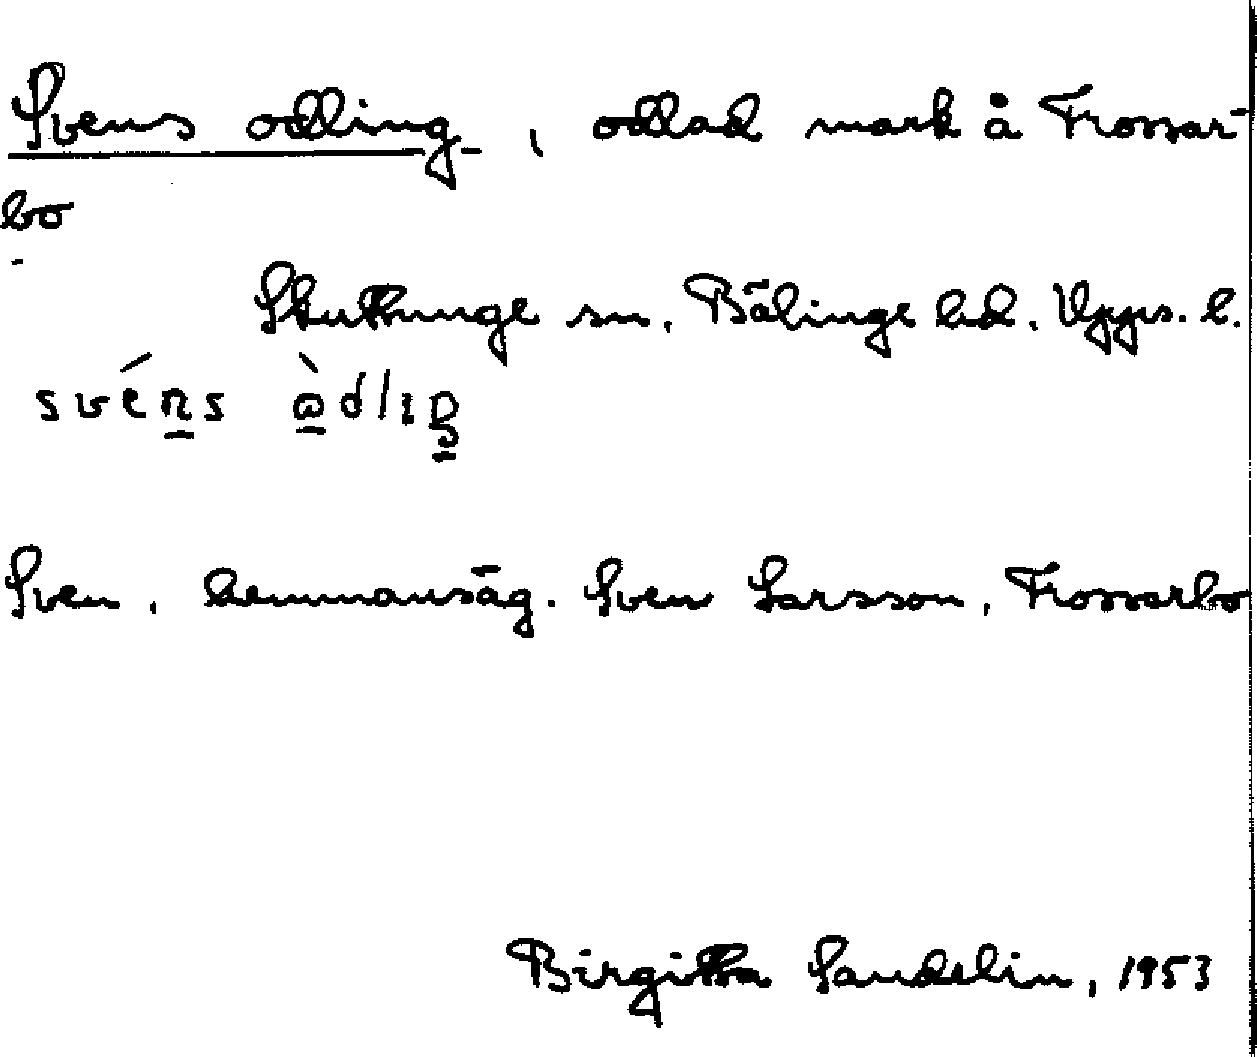 Svens odling, odlad mark å Frossar-
bo
Skuttunge sn. Bälinge hd. Upps. l.
svéns òdlıŋ
Sven, hemmansäg. Sven Larsson, Frossarbo
Birgitta Sandelin, 1953